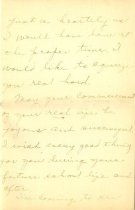 Just as heartily as
I would have done at
the proper time. I
would like to squeeze
you real hard.
May your commencement
of your real life be
joyous and successful
I wish every good thing
for you during your
future school life and
after.
I'm coming to see